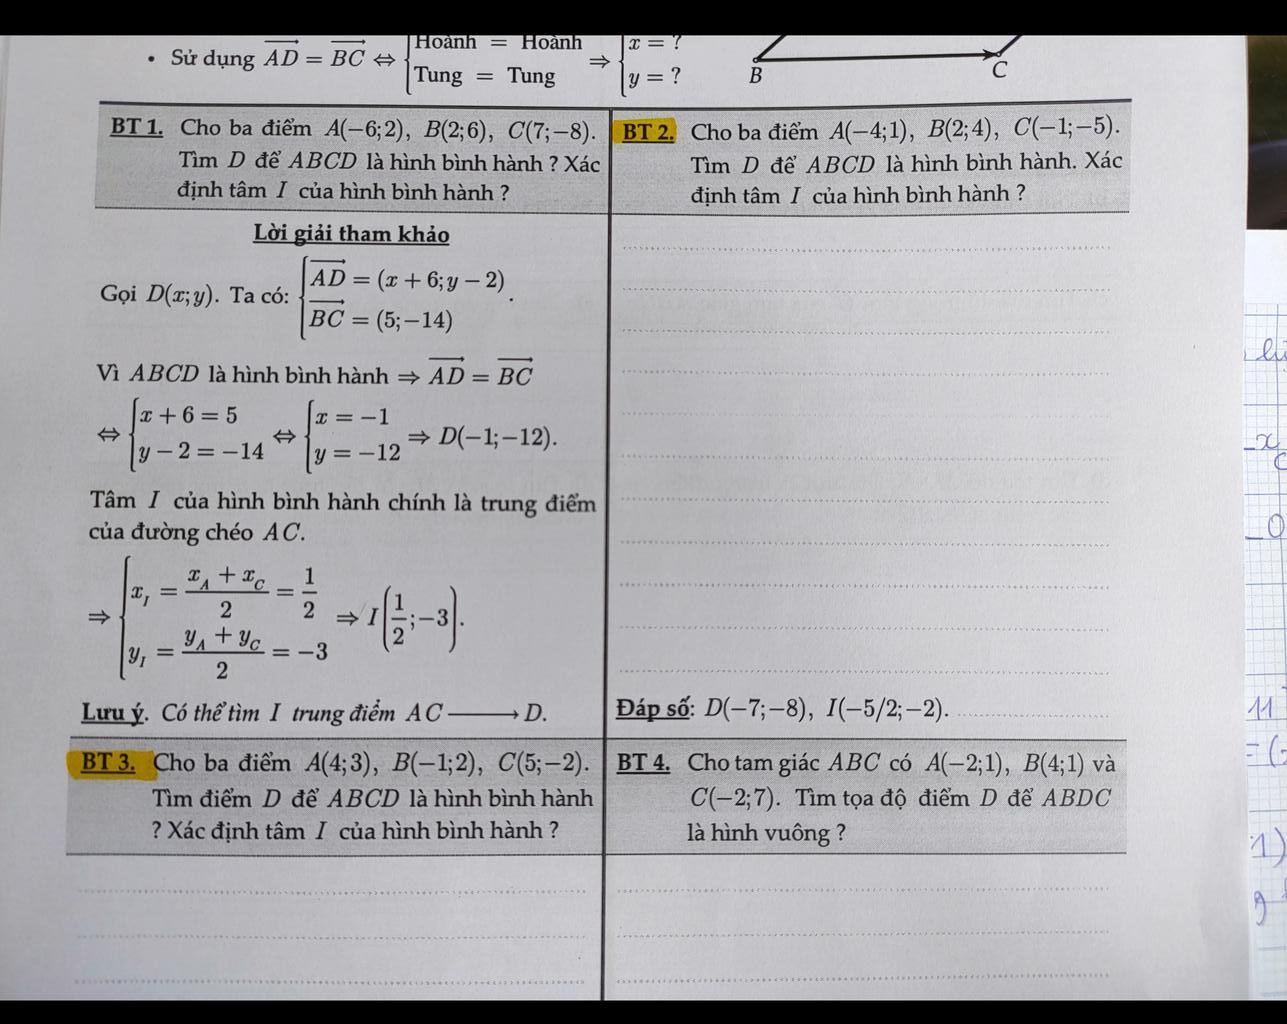 • Sử dụng AD = BC ⇔ { Hoành = Hoành ⇒ { x = ?
Tung = Tung y = ?
B C
BT 1. Cho ba điểm A(−6;2), B(2;6), C(7;−8).
Tìm D để ABCD là hình bình hành ? Xác
định tâm I của hình bình hành ?
Lời giải tham khảo
Gọi D(x;y). Ta có: { AD = (x + 6; y − 2)
BC = (5;−14) .
Vì ABCD là hình bình hành ⇒ AD = BC
⇔ { x + 6 = 5 ⇔ { x = −1
y − 2 = −14 y = −12 ⇒ D(−1;−12).
Tâm I của hình bình hành chính là trung điểm
của đường chéo AC.
⇒ { x_I = (x_A + x_C)/2 = 1/2
y_I = (y_A + y_C)/2 = −3 ⇒ I(1/2;−3).
Lưu ý. Có thể tìm I trung điểm AC ⟶ D.
BT 2. Cho ba điểm A(−4;1), B(2;4), C(−1;−5).
Tìm D để ABCD là hình bình hành. Xác
định tâm I của hình bình hành ?
Đáp số: D(−7;−8), I(−5/2;−2).
BT 3. Cho ba điểm A(4;3), B(−1;2), C(5;−2).
Tìm điểm D để ABCD là hình bình hành
? Xác định tâm I của hình bình hành ?
BT 4. Cho tam giác ABC có A(−2;1), B(4;1) và
C(−2;7). Tìm tọa độ điểm D để ABDC
là hình vuông ?